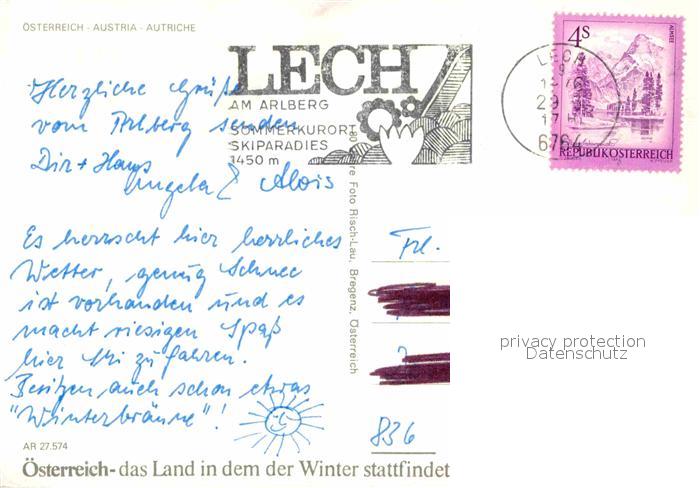 ÖSTERREICH - AUSTRIA - AUTRICHE
LECH
AM ARLBERG
SOMMERKURORT
SKIPARADIES
1450 m
LECH
29
17
6764
4S
ALMSEE
REPUBLIK ÖSTERREICH
Herzliche Grüße
vom Arlberg senden
Dir + Hans
Angela & Alois
Es herrscht hier herrliches
Wetter, genug Schnee
ist vorhanden und es
macht riesigen Spaß
hier Ski zu fahren.
Besitzen auch schon etwas
"Winterbräune"!
Foto Risch-Lau, Bregenz, Österreich
Frl.
836
privacy protection
Datenschutz
AR 27.574
Österreich - das Land in dem der Winter stattfindet